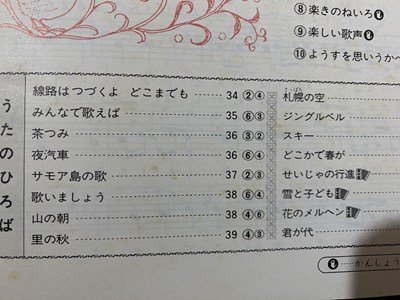 ⑧楽きのねいろ
⑨楽しい歌声
⑩ようすを思いうかべ
うたのひろば
線路はつづくよ どこまでも 34 ②④
みんなで歌えば 35 ⑥③
茶つみ 36 ③②
夜汽車 36 ⑥④
サモア島の歌 37 ②③
歌いましょう 38 ⑥④
山の朝 38 ④⑥
里の秋 39 ④③
札幌の空
ジングルベル
スキー
どこかで春が
せいじゃの行進
雪と子ども
花のメルヘン
君が代
かんしょう